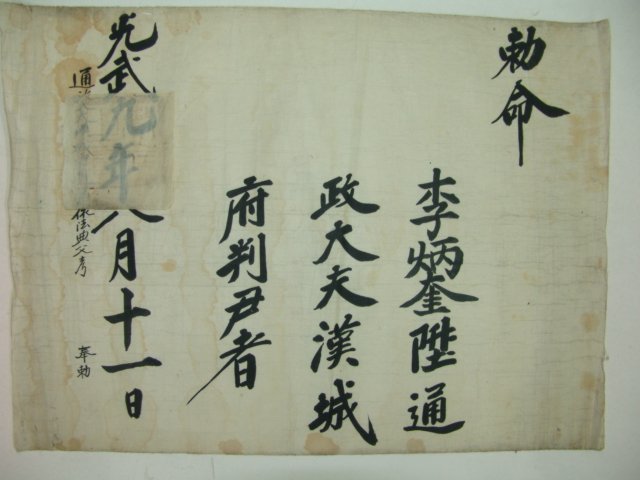 勅命
李炳奎陞通
政大夫漢城
府判尹者
光武九年八月十一日
通 依法典文考 奉勅